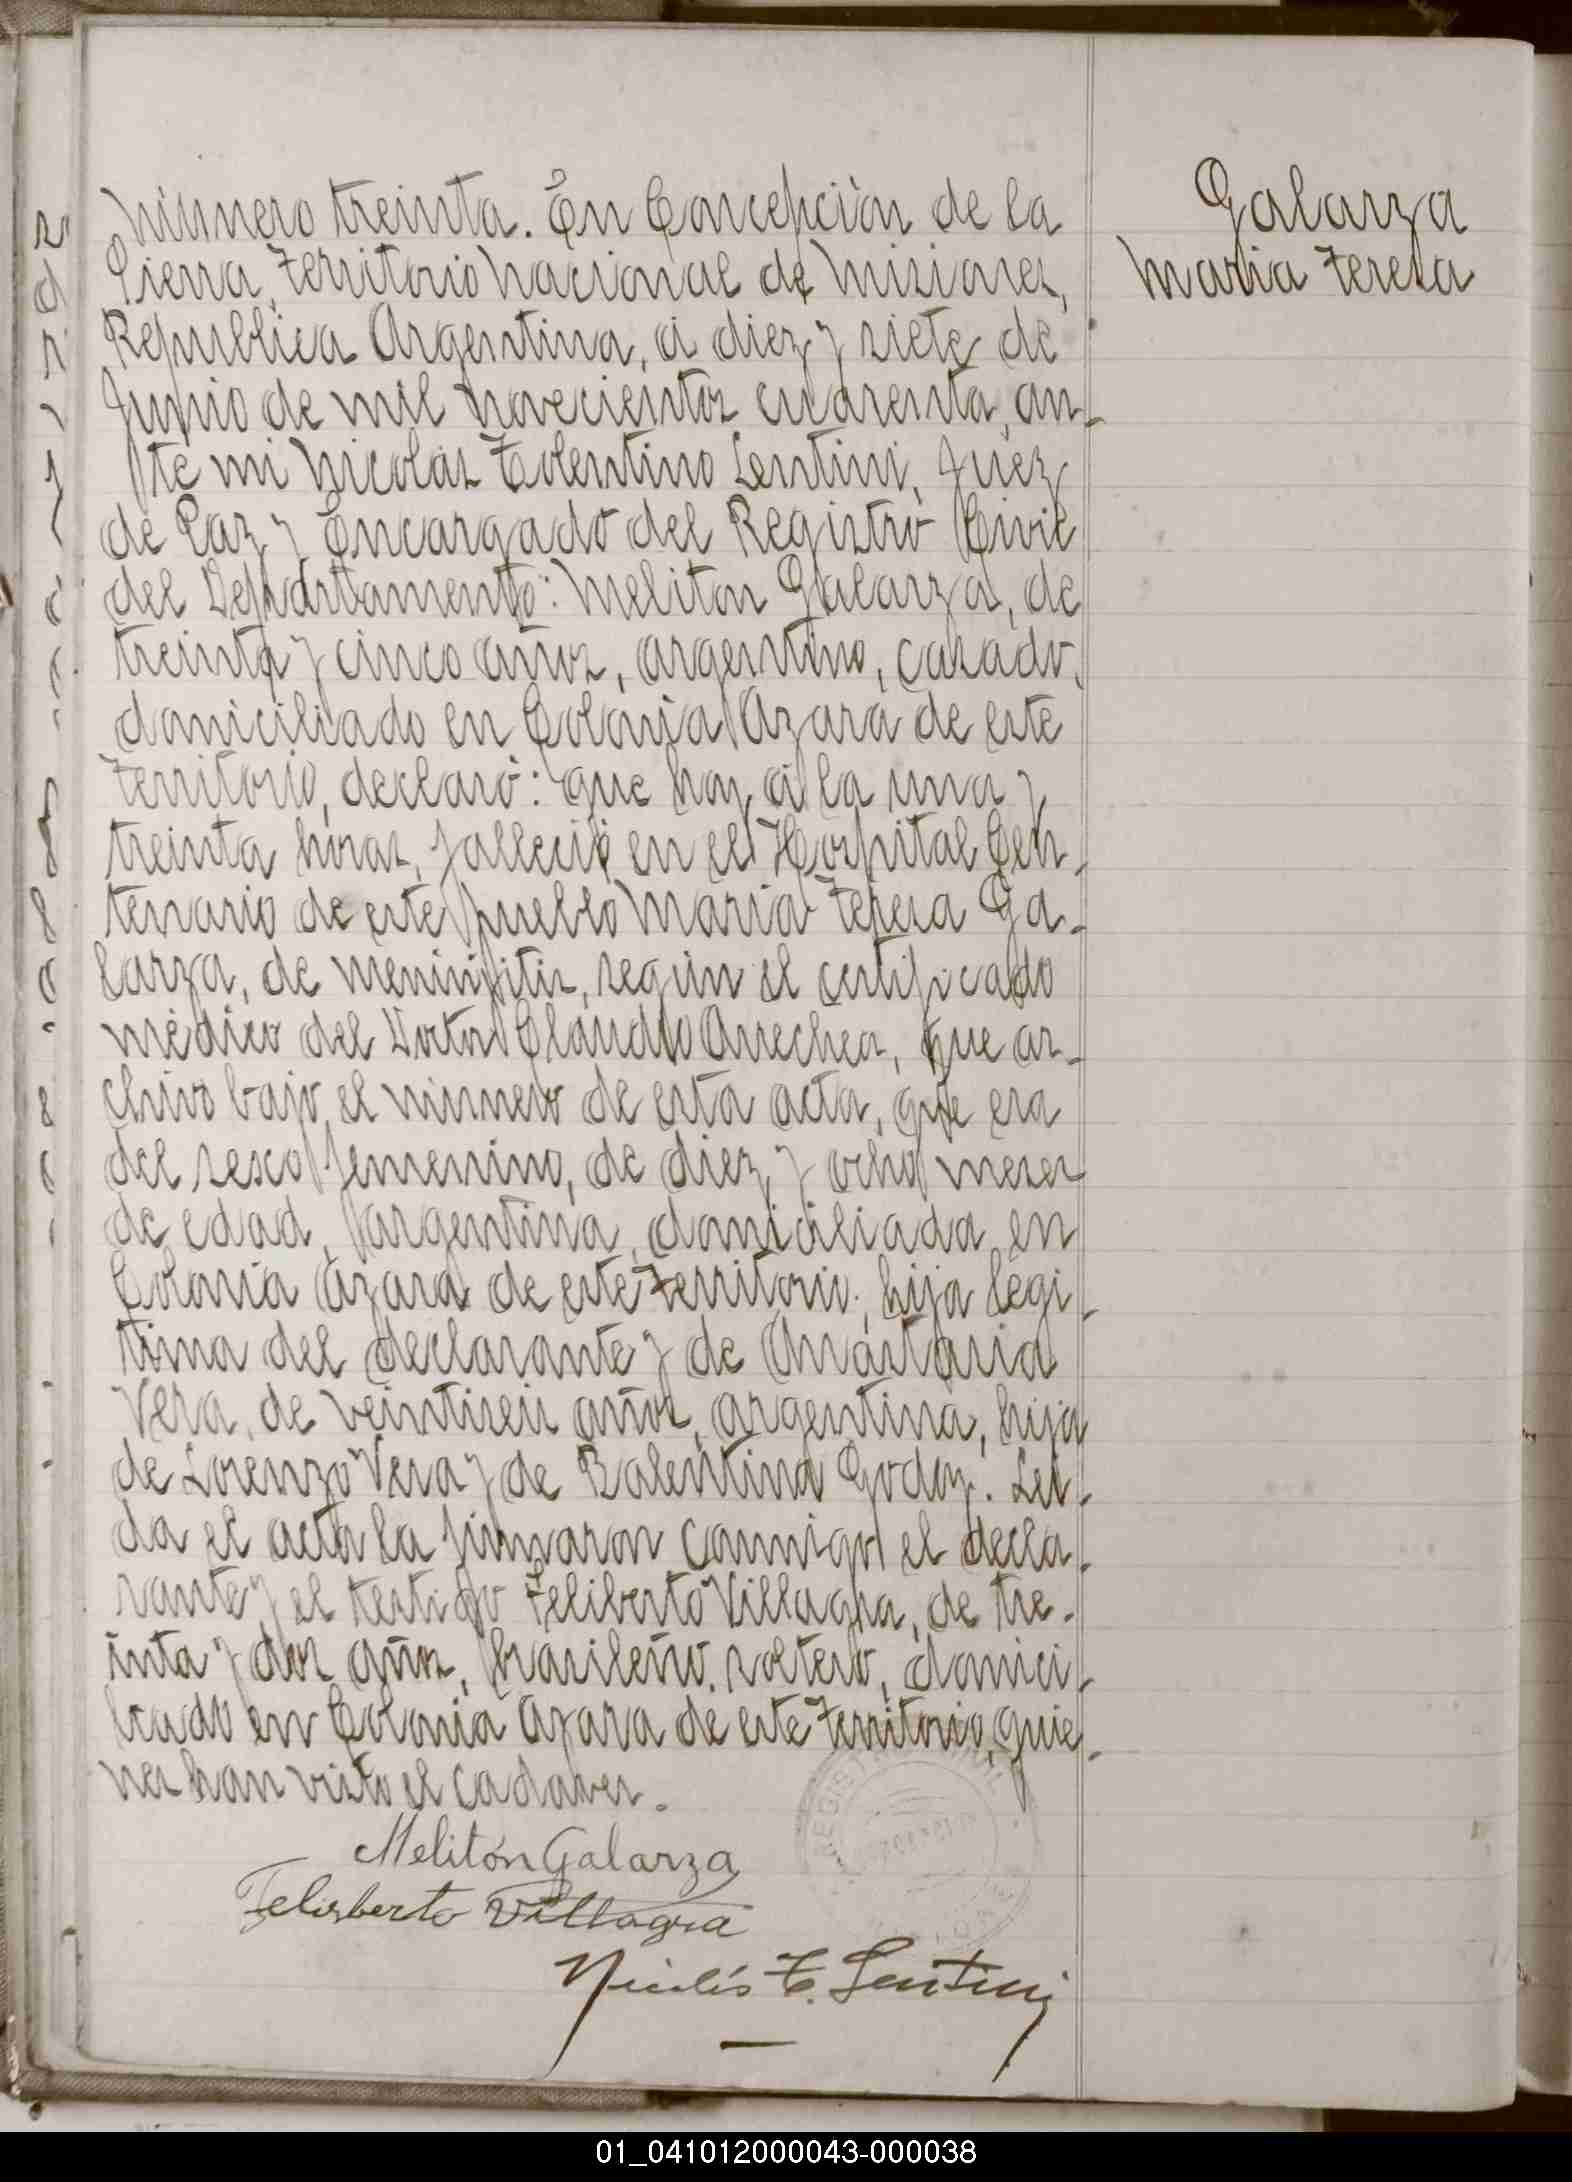 Número treinta. En Concepción de la
Sierra, Territorio Nacional de Misiones,
República Argentina, á diez y siete de
Junio de mil novecientos cuarenta, an-
te mi Nicolás Tolentino Lentini, Juez
de Paz y Encargado del Registro Civil
del Departamento: Meliton Galarza, de
treinta y cinco años, argentino, casado,
domiciliado en Colonia Azara de este
Territorio, declaró: que hoy á la una y
treinta horas, falleció en el Hospital Cen-
tenario de este pueblo María Teresa Ga-
larza, de meninjitis, según el certificado
médico del Doctor Claudio Arrechea, que ar-
chivo bajo el número de esta acta, que era
del sexo femenino, de diez y ocho meses
de edad, argentina, domiciliada en
Colonia Azara de este Territorio, hija légi-
tima del declarante y de Anastasia
Vera, de veintiseis años, argentina, hija
de Lorenzo Vera y de Balentina Godoy. Lei-
da el acta la firmaron conmigo el decla-
rante y el testigo Feliberto Villagra, de tre-
inta y dos años, brasileño, soltero, domici-
liado en Colonia Azara de este Territorio, quie-
nes han visto el cadaver.
Melitón Galarza
Felisberto Villagra
Nicolás T. Lentini
Galarza
María Teresa
01_041012000043-000038